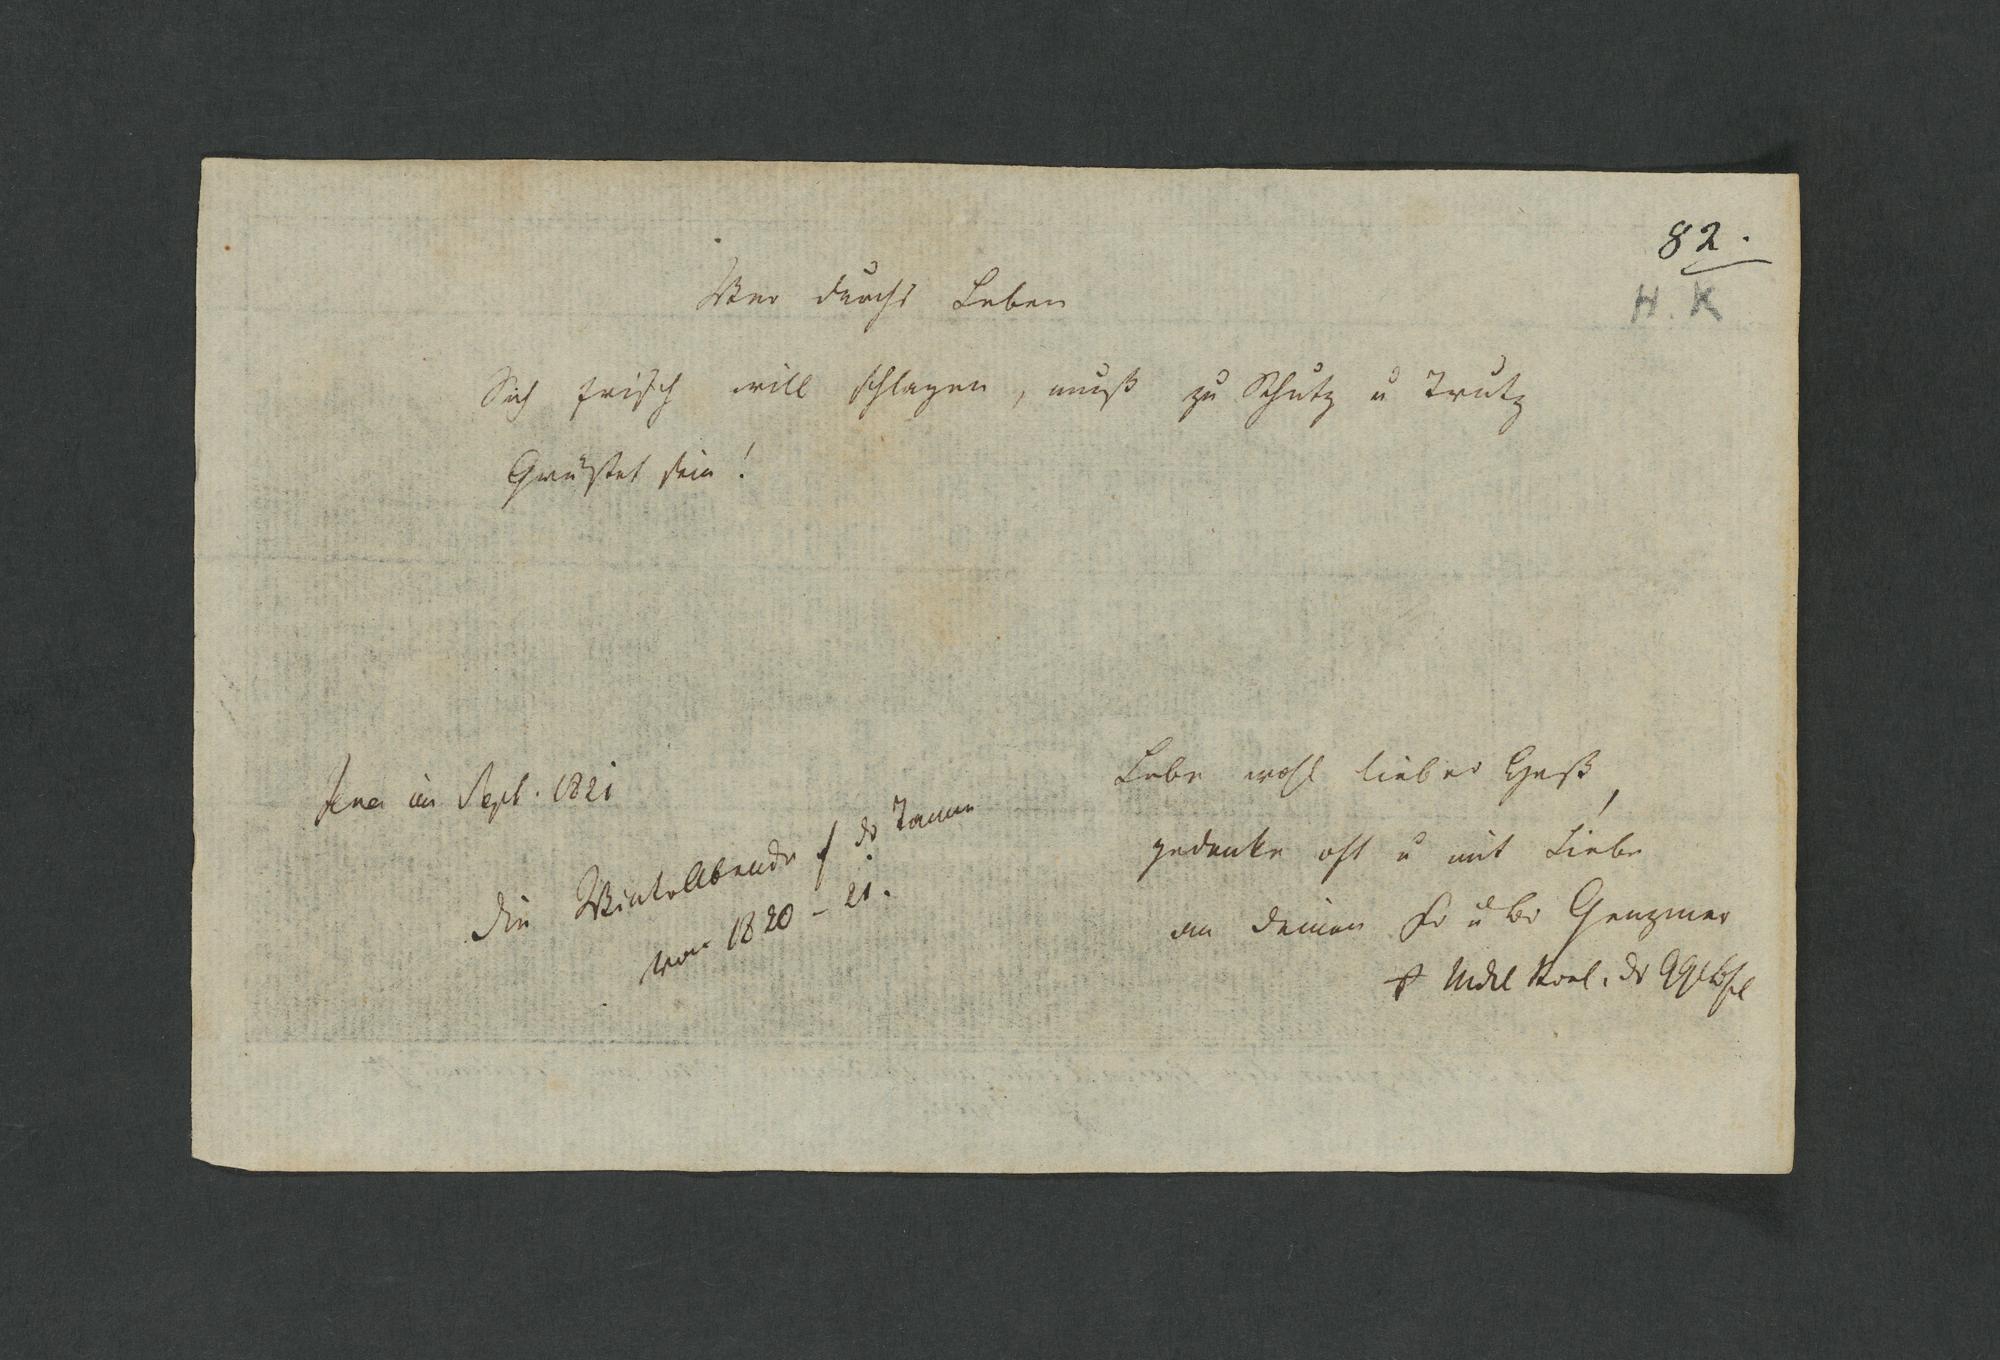 82.
H. K
Wer durchs Leben
Sich frisch will schlagen, muß zu Schutz u Trutz
Gerüstet sein!
Jena im Sept. 1821
Die Winterabende der Tanne
von 1820 – 21.
Lebe wohl lieber Heß,
gedenke oft u mit Liebe
an deinen Fr u Br Genzmer